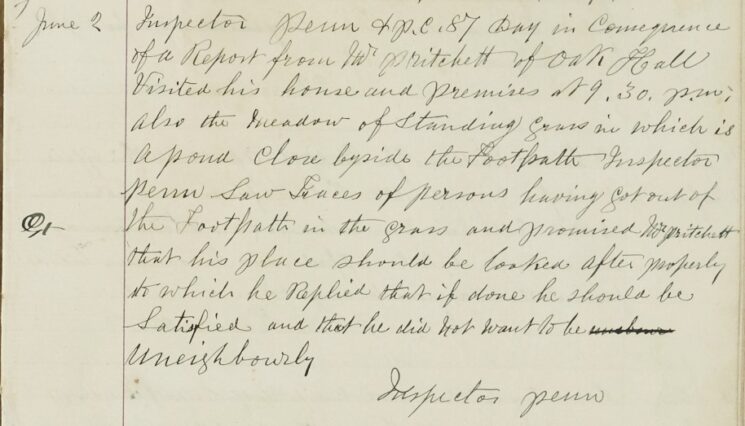 June 2 Inspector Penn & P.C. 87 Day in Consequence
of a Report from Mr Pritchett of Oak Hall
Visited his house and premises at 9.30. p.m;
also the Meadow of Standing grass in which is
a pond Close byside the Footpath Inspector
Penn Saw Traces of persons having got out of
the Footpath in the grass and promised Mr Pritchett
that his place should be looked after properly
to which he Replied that if done he should be
Satisfied and that he did not want to be
Uneighbourly
Inspector Penn